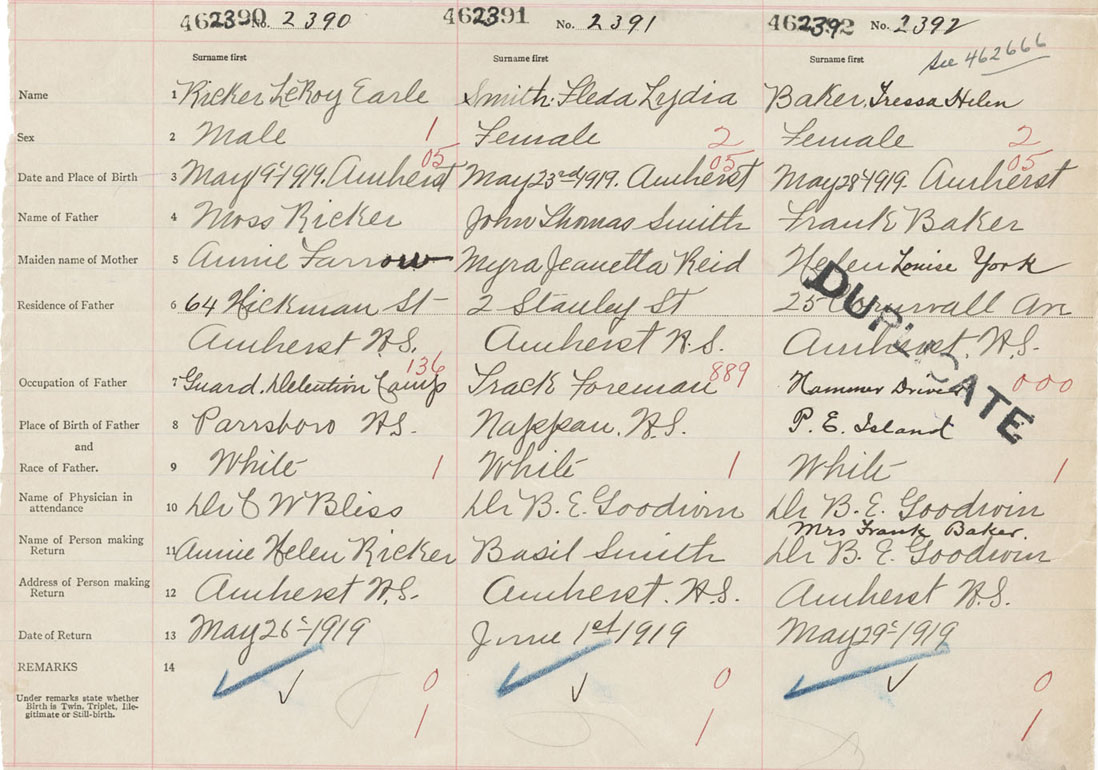 462390 No. 2390 462391 No. 2391 462392 No. 2392
See 462666
Surname first Surname first Surname first
Name 1 Ricker LeRoy Earle Smith. Fleda Lydia Baker, Tressa Helen
Sex 2 Male 1 Female 2 Female 2
05 05 05
Date and Place of Birth 3 May 19th 1919. Amherst May 23rd 1919. Amherst May 28 1919. Amherst
Name of Father 4 Moss Ricker John Thomas Smith Frank Baker
Maiden name of Mother 5 Annie Farrow Myra Jeanetta Reid Helen Louise York
Residence of Father 6 64 Hickman St 2 Stanley St 25 Cornwall Av
Amherst N.S. Amherst N.S. Amherst. N.S.
DUPLICATE
136 889 000
Occupation of Father 7 Guard. Detention Camp Track Foreman Hammer Driver
Place of Birth of Father 8 Parrsboro N.S. Nappan. N.S. P. E. Island
and
Race of Father. 9 White 1 White 1 White 1
Name of Physician in
attendance 10 Dr C W Bliss Dr B. E. Goodwin Dr B. E. Goodwin
Mrs Frank Baker.
Name of Person making
Return 11 Annie Helen Ricker Basil Smith Dr B. E. Goodwin
Address of Person making
Return 12 Amherst N.S. Amherst. N.S. Amherst N.S.
Date of Return 13 May 26th 1919 June 1st 1919 May 29th 1919
REMARKS 14
0 0 0
Under remarks state whether
Birth is Twin, Triplet, Ille-
gitimate or Still-birth.
1 1 1